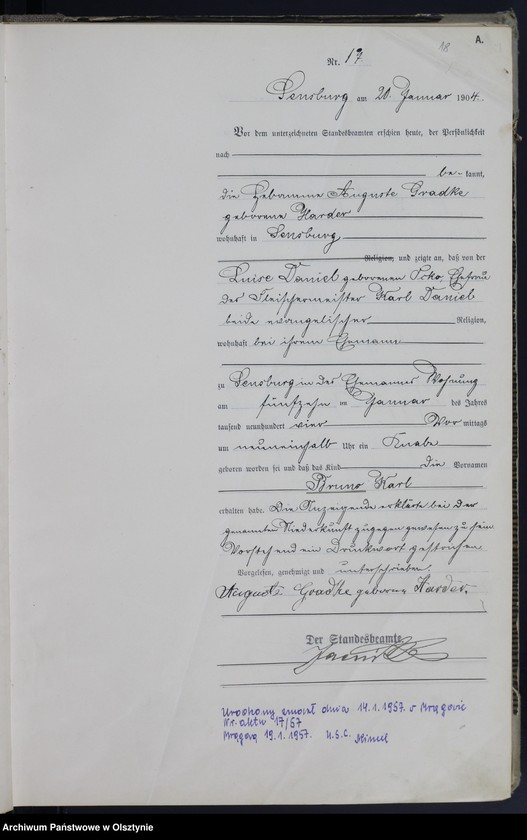 18
A.
Nr. 17
Sensburg am 20. Januar 1904.
Vor dem unterzeichneten Standesbeamten erschien heute, der Persönlichkeit
nach
be- kannt,
die Hebamme Auguste Gradke
geborene Harder
wohnhaft in Sensburg
Religion, und zeigte an, daß von der
Luise Daniel geborenen Ehefrau
des Fleischermeister Karl Daniel
beide evangelischer Religion,
wohnhaft bei ihrem Ehemann
zu Sensburg in des Ehemannes Wohnung
am fünfzehn ten Januar des Jahres
tausend neunhundert vier Vor mittags
um neuneinhalb Uhr ein Knabe
geboren worden sei und daß das Kind die Vornamen
Bruno Karl
erhalten habe. Die Anzeigende erklärte bei der
genannten Niederkunft zugegen gewesen zu sein
Vorstehend ein Druckwort gestrichen
Vorgelesen, genehmigt und unterschrieben.
Auguste Gradke geborene Harder.
Der Standesbeamte
Urodzony zmarł dnia 14.1.1957. w Mrągowie
Nr. aktu 17/57
Mrągowo 19.1.1957. U.S.C.
Archiwum Państwowe w Olsztynie